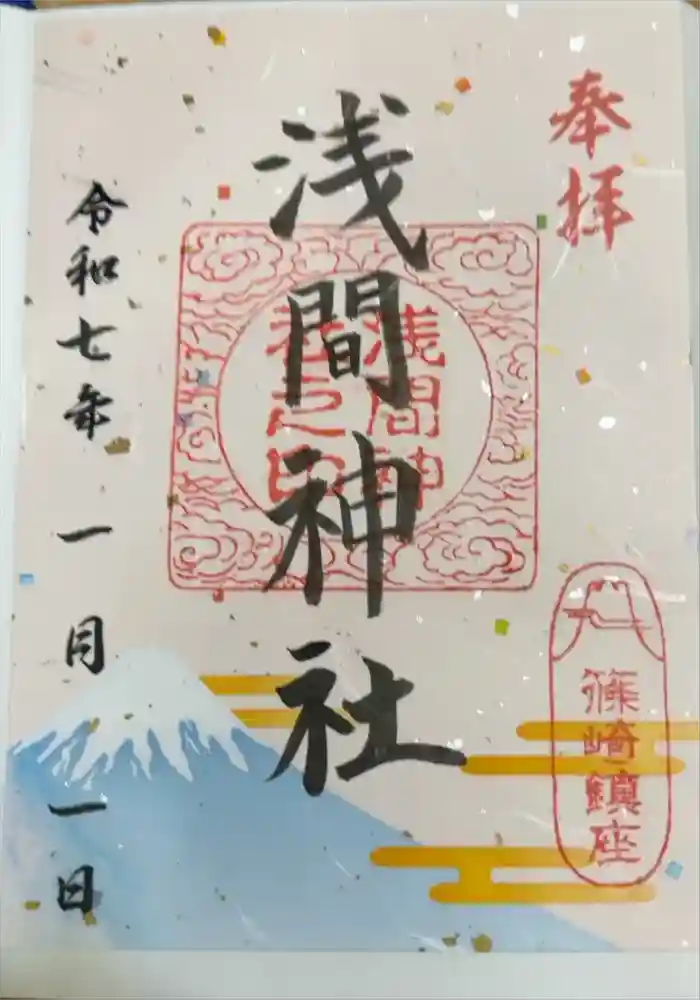 奉拝
篠崎鎮座
浅間神社
浅間神
社之印
令和七年 一月 一日